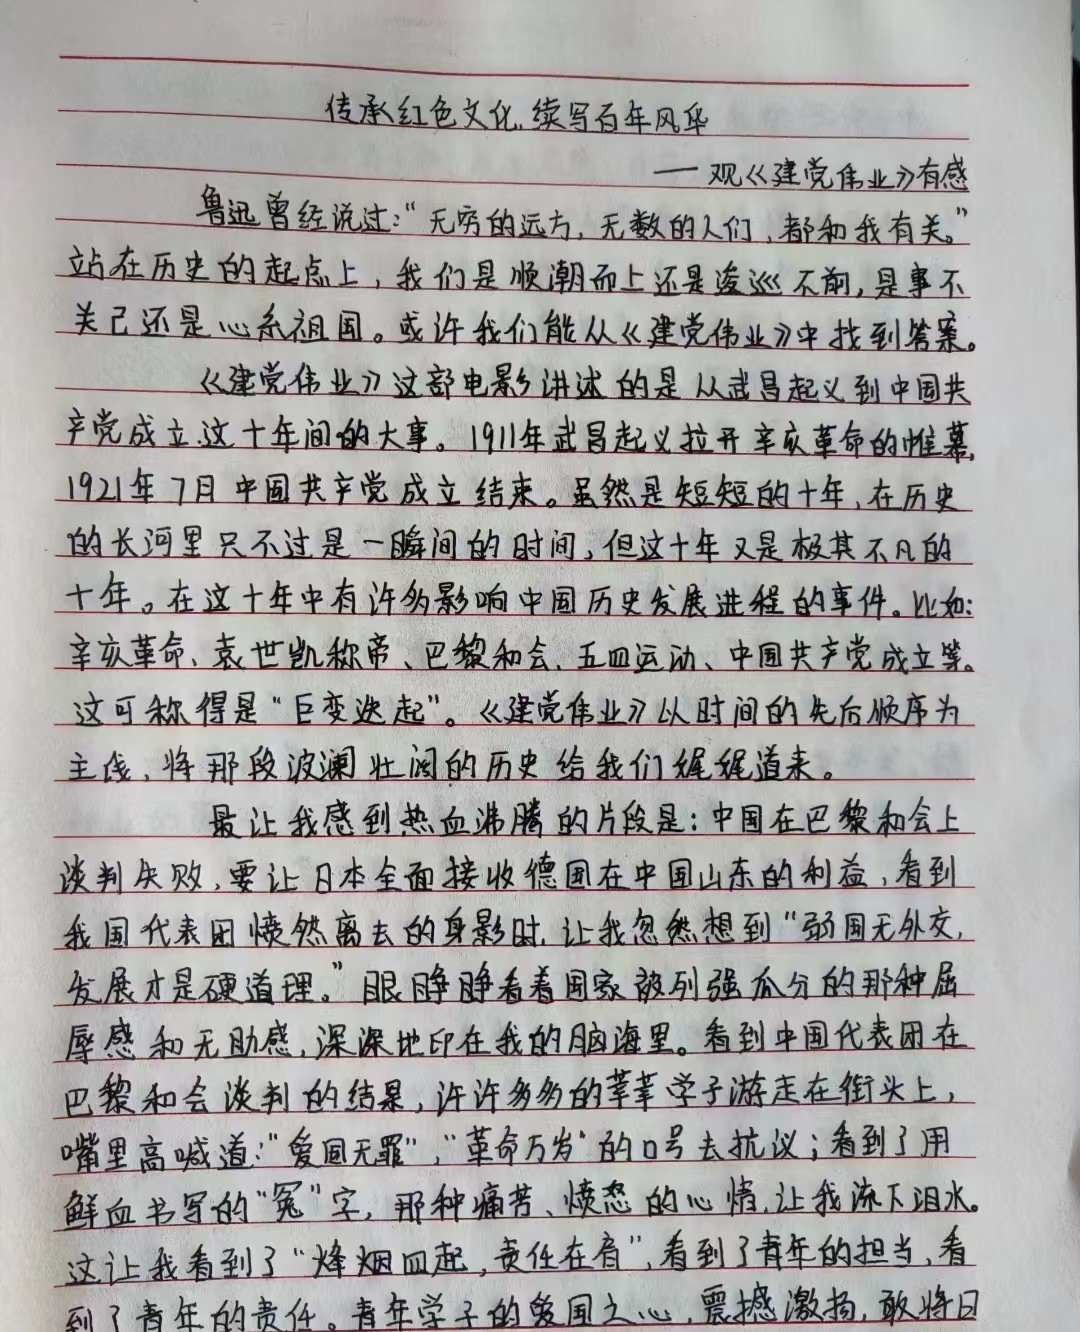 传承红色文化,续写百年风华
——观《建党伟业》有感
鲁迅曾经说过:“无穷的远方,无数的人们,都和我有关。”
站在历史的起点上,我们是顺潮而上还是逡巡不前,是事不
关己还是心系祖国。或许我们能从《建党伟业》中找到答案。
《建党伟业》这部电影讲述的是从武昌起义到中国共
产党成立这十年间的大事。1911年武昌起义拉开辛亥革命的帷幕,
1921年7月中国共产党成立结束。虽然是短短的十年,在历史
的长河里只不过是一瞬间的时间,但这十年又是极其不凡的
十年。在这十年中有许多影响中国历史发展进程的事件。比如:
辛亥革命、袁世凯称帝、巴黎和会、五四运动、中国共产党成立等。
这可称得是“巨变迭起”。《建党伟业》以时间的先后顺序为
主线,将那段波澜壮阔的历史给我们娓娓道来。
最让我感到热血沸腾的片段是:中国在巴黎和会上
谈判失败,要让日本全面接收德国在中国山东的利益,看到
我国代表团愤然离去的身影时,让我忽然想到“弱国无外交,
发展才是硬道理。”眼睁睁看着国家被列强瓜分的那种屈
辱感和无助感,深深地印在我的脑海里。看到中国代表团在
巴黎和会谈判的结果,许许多多的莘莘学子游走在街头上,
嘴里高喊道:“爱国无罪”,“革命万岁”的口号去抗议;看到了用
鲜血书写的“冤”字,那种痛苦、愤怒的心情,让我流下泪水。
这让我看到了“烽烟四起,责任在肩”,看到了青年的担当,看
到了青年的责任。青年学子的爱国之心,震撼激扬,敢将日